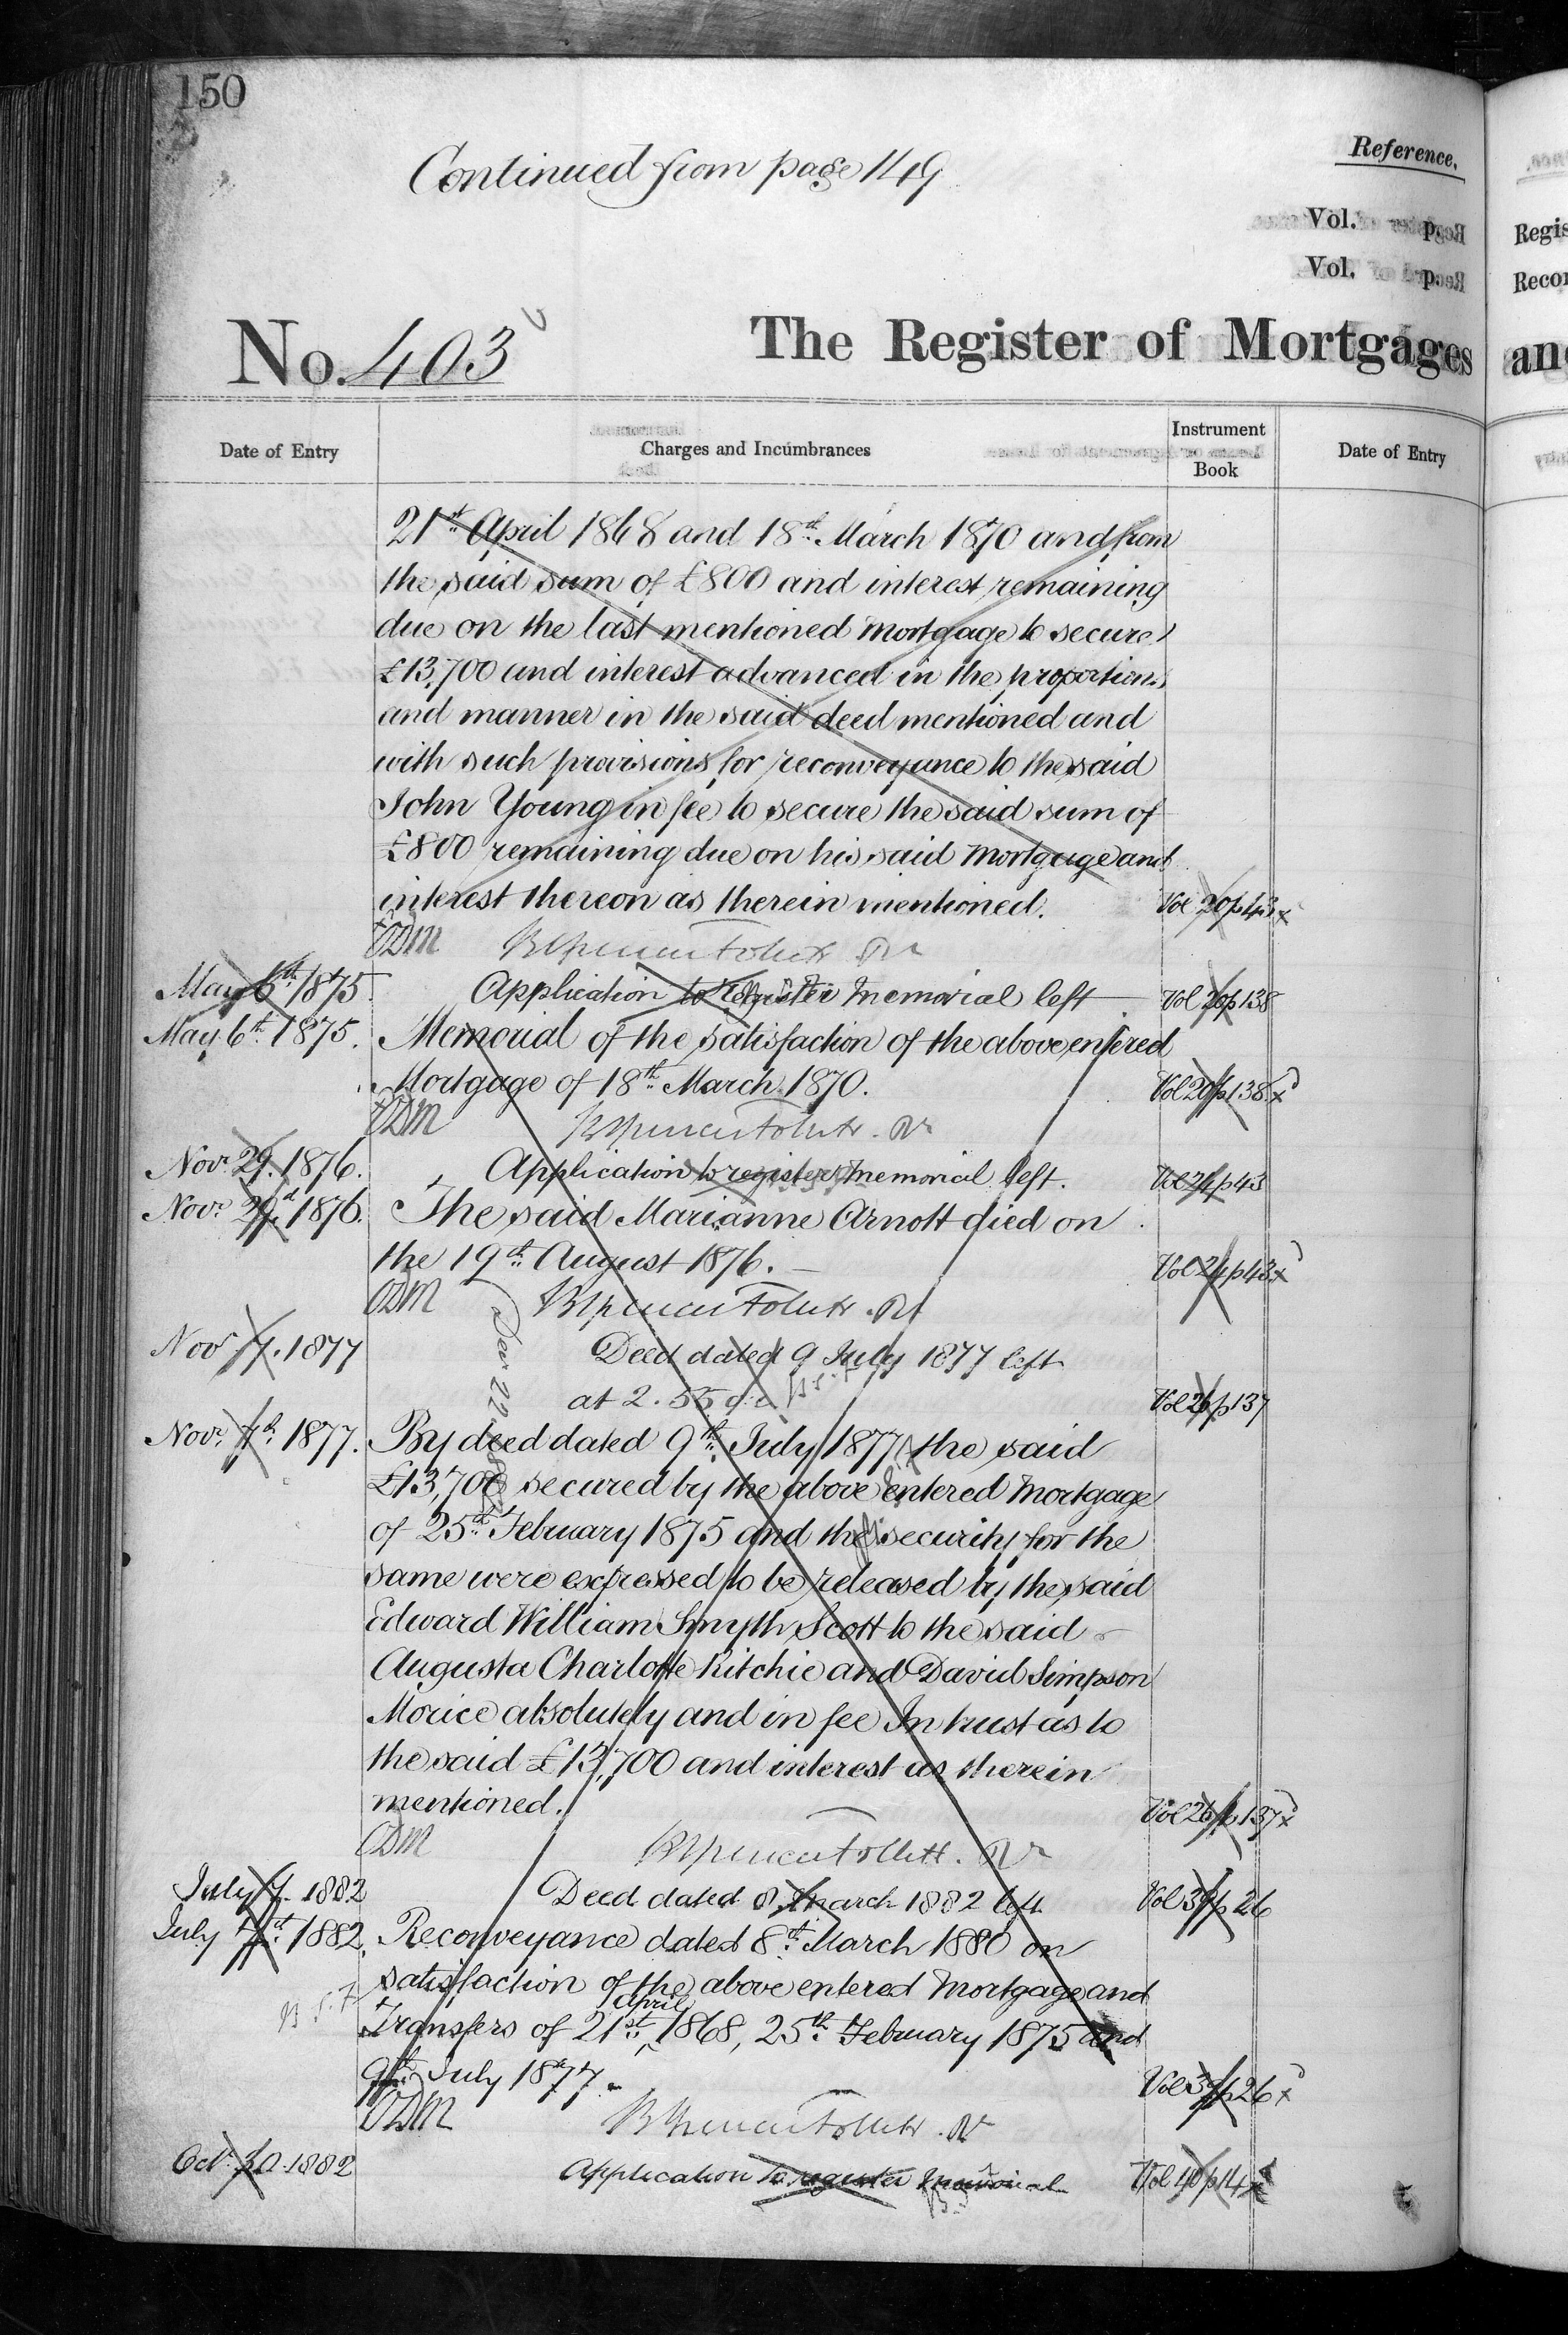 150
Continued from page 149
Reference.
Vol. p.
Vol. p.
No. 403
The Register of Mortgages
Date of Entry
Charges and Incumbrances
Instrument Book
Date of Entry
21st April 1868 and 18th March 1870 and from
the said sum of £800 and interest remaining
due on the last mentioned Mortgage to secure
£13,700 and interest advanced in the proportions
and manner in the said deed mentioned and
with such provisions for reconveyance to the said
John Young in fee to secure the said sum of
£800 remaining due on his said Mortgage and
interest thereon as therein mentioned. Vol 20 p 43
ODM
May 6th 1875. Application to register Memorial left Vol 20 p 138
May 6th 1875. Memorial of the satisfaction of the above entered
Mortgage of 18th March 1870. Vol 20 p 138
ODM
Nov. 29. 1876. Application to register Memorial left. Vol 24 p 43
Nov. 29th 1876. The said Marianne Arnott died on
the 19th August 1876. Vol 24 p 43
ODM
Nov 7. 1877 Deed dated 9 July 1877 left
at 2.55 Vol 26 p 137
Nov. 7th 1877. By deed dated 9th July 1877 the said
£13,700 secured by the above entered Mortgage
of 25th February 1875 and the security for the
same were expressed to be released by the said
Edward William Smyth Scott to the said
Augusta Charlotte Ritchie and David Simpson
Morice absolutely and in fee In trust as to
the said £13,700 and interest as therein
mentioned. Vol 26 p 137
ODM
July 7. 1882 Deed dated 8 March 1882 left Vol 39 p 26
July 7th 1882. Reconveyance dated 8th March 1880 on
satisfaction of the above entered Mortgage and
Transfers of 21st April 1868, 25th February 1875 and
9th July 1877. Vol 39 p 26
ODM
Oct. 30. 1882 Application to register Memorial Vol 40 p 14
Regis
Recor
and